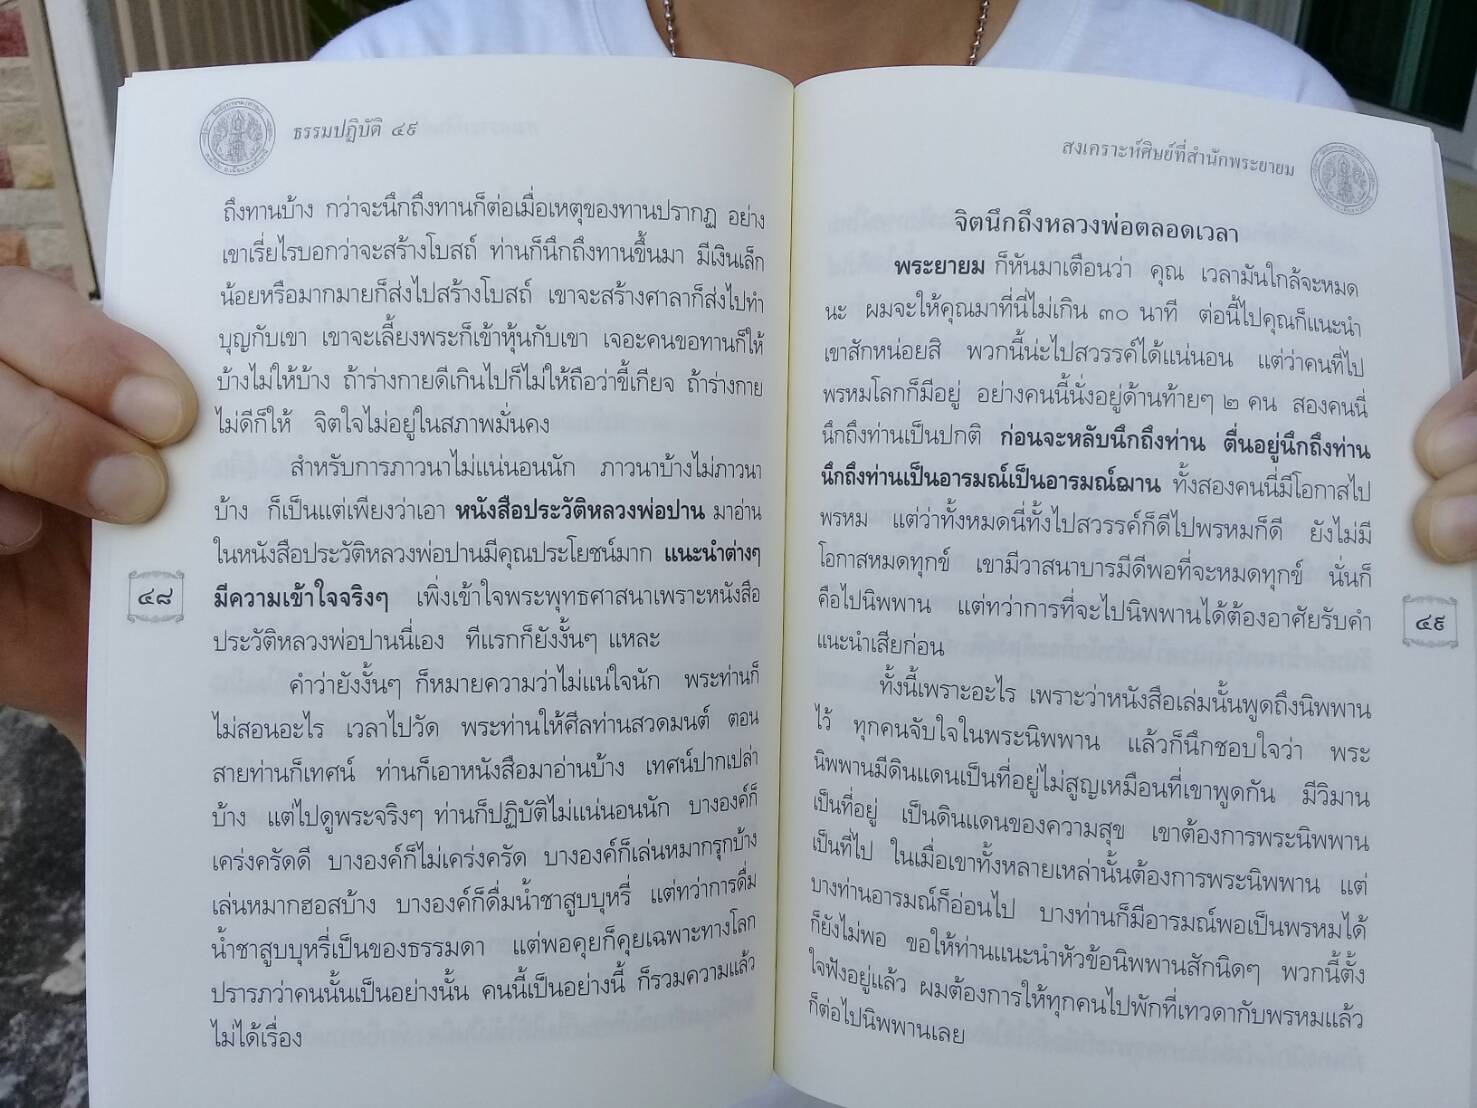 ธรรมปฏิบัติ ๔๙
ถึงทานบ้าง กว่าจะนึกถึงทานก็ต่อเมื่อเหตุของทานปรากฏ อย่าง
เขาเรี่ยไรบอกว่าจะสร้างโบสถ์ ท่านก็นึกถึงทานขึ้นมา มีเงินเล็ก
น้อยหรือมากมายก็ส่งไปสร้างโบสถ์ เขาจะสร้างศาลาก็ส่งไปทำ
บุญกับเขา เขาจะเลี้ยงพระก็เข้าหุ้นกับเขา เจอะคนขอทานก็ให้
บ้างไม่ให้บ้าง ถ้าร่างกายดีเกินไปก็ไม่ให้ถือว่าขี้เกียจ ถ้าร่างกาย
ไม่ดีก็ให้ จิตใจไม่อยู่ในสภาพมั่นคง
สำหรับการภาวนาไม่แน่นอนนัก ภาวนาบ้างไม่ภาวนา
บ้าง ก็เป็นแต่เพียงว่าเอา หนังสือประวัติหลวงพ่อปาน มาอ่าน
ในหนังสือประวัติหลวงพ่อปานมีคุณประโยชน์มาก แนะนำต่างๆ
มีความเข้าใจจริงๆ เพิ่งเข้าใจพระพุทธศาสนาเพราะหนังสือ
ประวัติหลวงพ่อปานนี่เอง ทีแรกก็ยังงั้นๆ แหละ
คำว่ายังงั้นๆ ก็หมายความว่าไม่แน่ใจนัก พระท่านก็
ไม่สอนอะไร เวลาไปวัด พระท่านให้ศีลท่านสวดมนต์ ตอน
สายท่านก็เทศน์ ท่านก็เอาหนังสือมาอ่านบ้าง เทศน์ปากเปล่า
บ้าง แต่ไปดูพระจริงๆ ท่านก็ปฏิบัติไม่แน่นอนนัก บางองค์ก็
เคร่งครัดดี บางองค์ก็ไม่เคร่งครัด บางองค์ก็เล่นหมากรุกบ้าง
เล่นหมากฮอสบ้าง บางองค์ก็ดื่มน้ำชาสูบบุหรี่ แต่ทว่าการดื่ม
น้ำชาสูบบุหรี่เป็นของธรรมดา แต่พอคุยก็คุยเฉพาะทางโลก
ปรารภว่าคนนั้นเป็นอย่างนั้น คนนี้เป็นอย่างนี้ ก็รวมความแล้ว
ไม่ได้เรื่อง
๔๘
สงเคราะห์ศิษย์ที่สำนักพระยายม
จิตนึกถึงหลวงพ่อตลอดเวลา
พระยายม ก็หันมาเตือนว่า คุณ เวลามันใกล้จะหมด
นะ ผมจะให้คุณมาที่นี่ไม่เกิน ๓๐ นาที ต่อนี้ไปคุณก็แนะนำ
เขาสักหน่อยสิ พวกนี้น่ะไปสวรรค์ได้แน่นอน แต่ว่าคนที่ไป
พรหมโลกก็มีอยู่ อย่างคนนี้นั่งอยู่ด้านท้ายๆ ๒ คน สองคนนี่
นึกถึงท่านเป็นปกติ ก่อนจะหลับนึกถึงท่าน ตื่นอยู่นึกถึงท่าน
นึกถึงท่านเป็นอารมณ์เป็นอารมณ์ฌาน ทั้งสองคนนี่มีโอกาสไป
พรหม แต่ว่าทั้งหมดนี่ทั้งไปสวรรค์ก็ดีไปพรหมก็ดี ยังไม่มี
โอกาสหมดทุกข์ เขามีวาสนาบารมีดีพอที่จะหมดทุกข์ นั่นก็
คือไปนิพพาน แต่ทว่าการที่จะไปนิพพานได้ต้องอาศัยรับคำ
แนะนำเสียก่อน
ทั้งนี้เพราะอะไร เพราะว่าหนังสือเล่มนั้นพูดถึงนิพพาน
ไว้ ทุกคนจับใจในพระนิพพาน แล้วก็นึกชอบใจว่า พระ
นิพพานมีดินแดนเป็นที่อยู่ไม่สูญเหมือนที่เขาพูดกัน มีวิมาน
เป็นที่อยู่ เป็นดินแดนของความสุข เขาต้องการพระนิพพาน
เป็นที่ไป ในเมื่อเขาทั้งหลายเหล่านั้นต้องการพระนิพพาน แต่
บางท่านอารมณ์ก็อ่อนไป บางท่านก็มีอารมณ์พอเป็นพรหมได้
ก็ยังไม่พอ ขอให้ท่านแนะนำหัวข้อนิพพานสักนิดๆ พวกนี้ตั้ง
ใจฟังอยู่แล้ว ผมต้องการให้ทุกคนไปพักที่เทวดากับพรหมแล้ว
ก็ต่อไปนิพพานเลย
๔๙